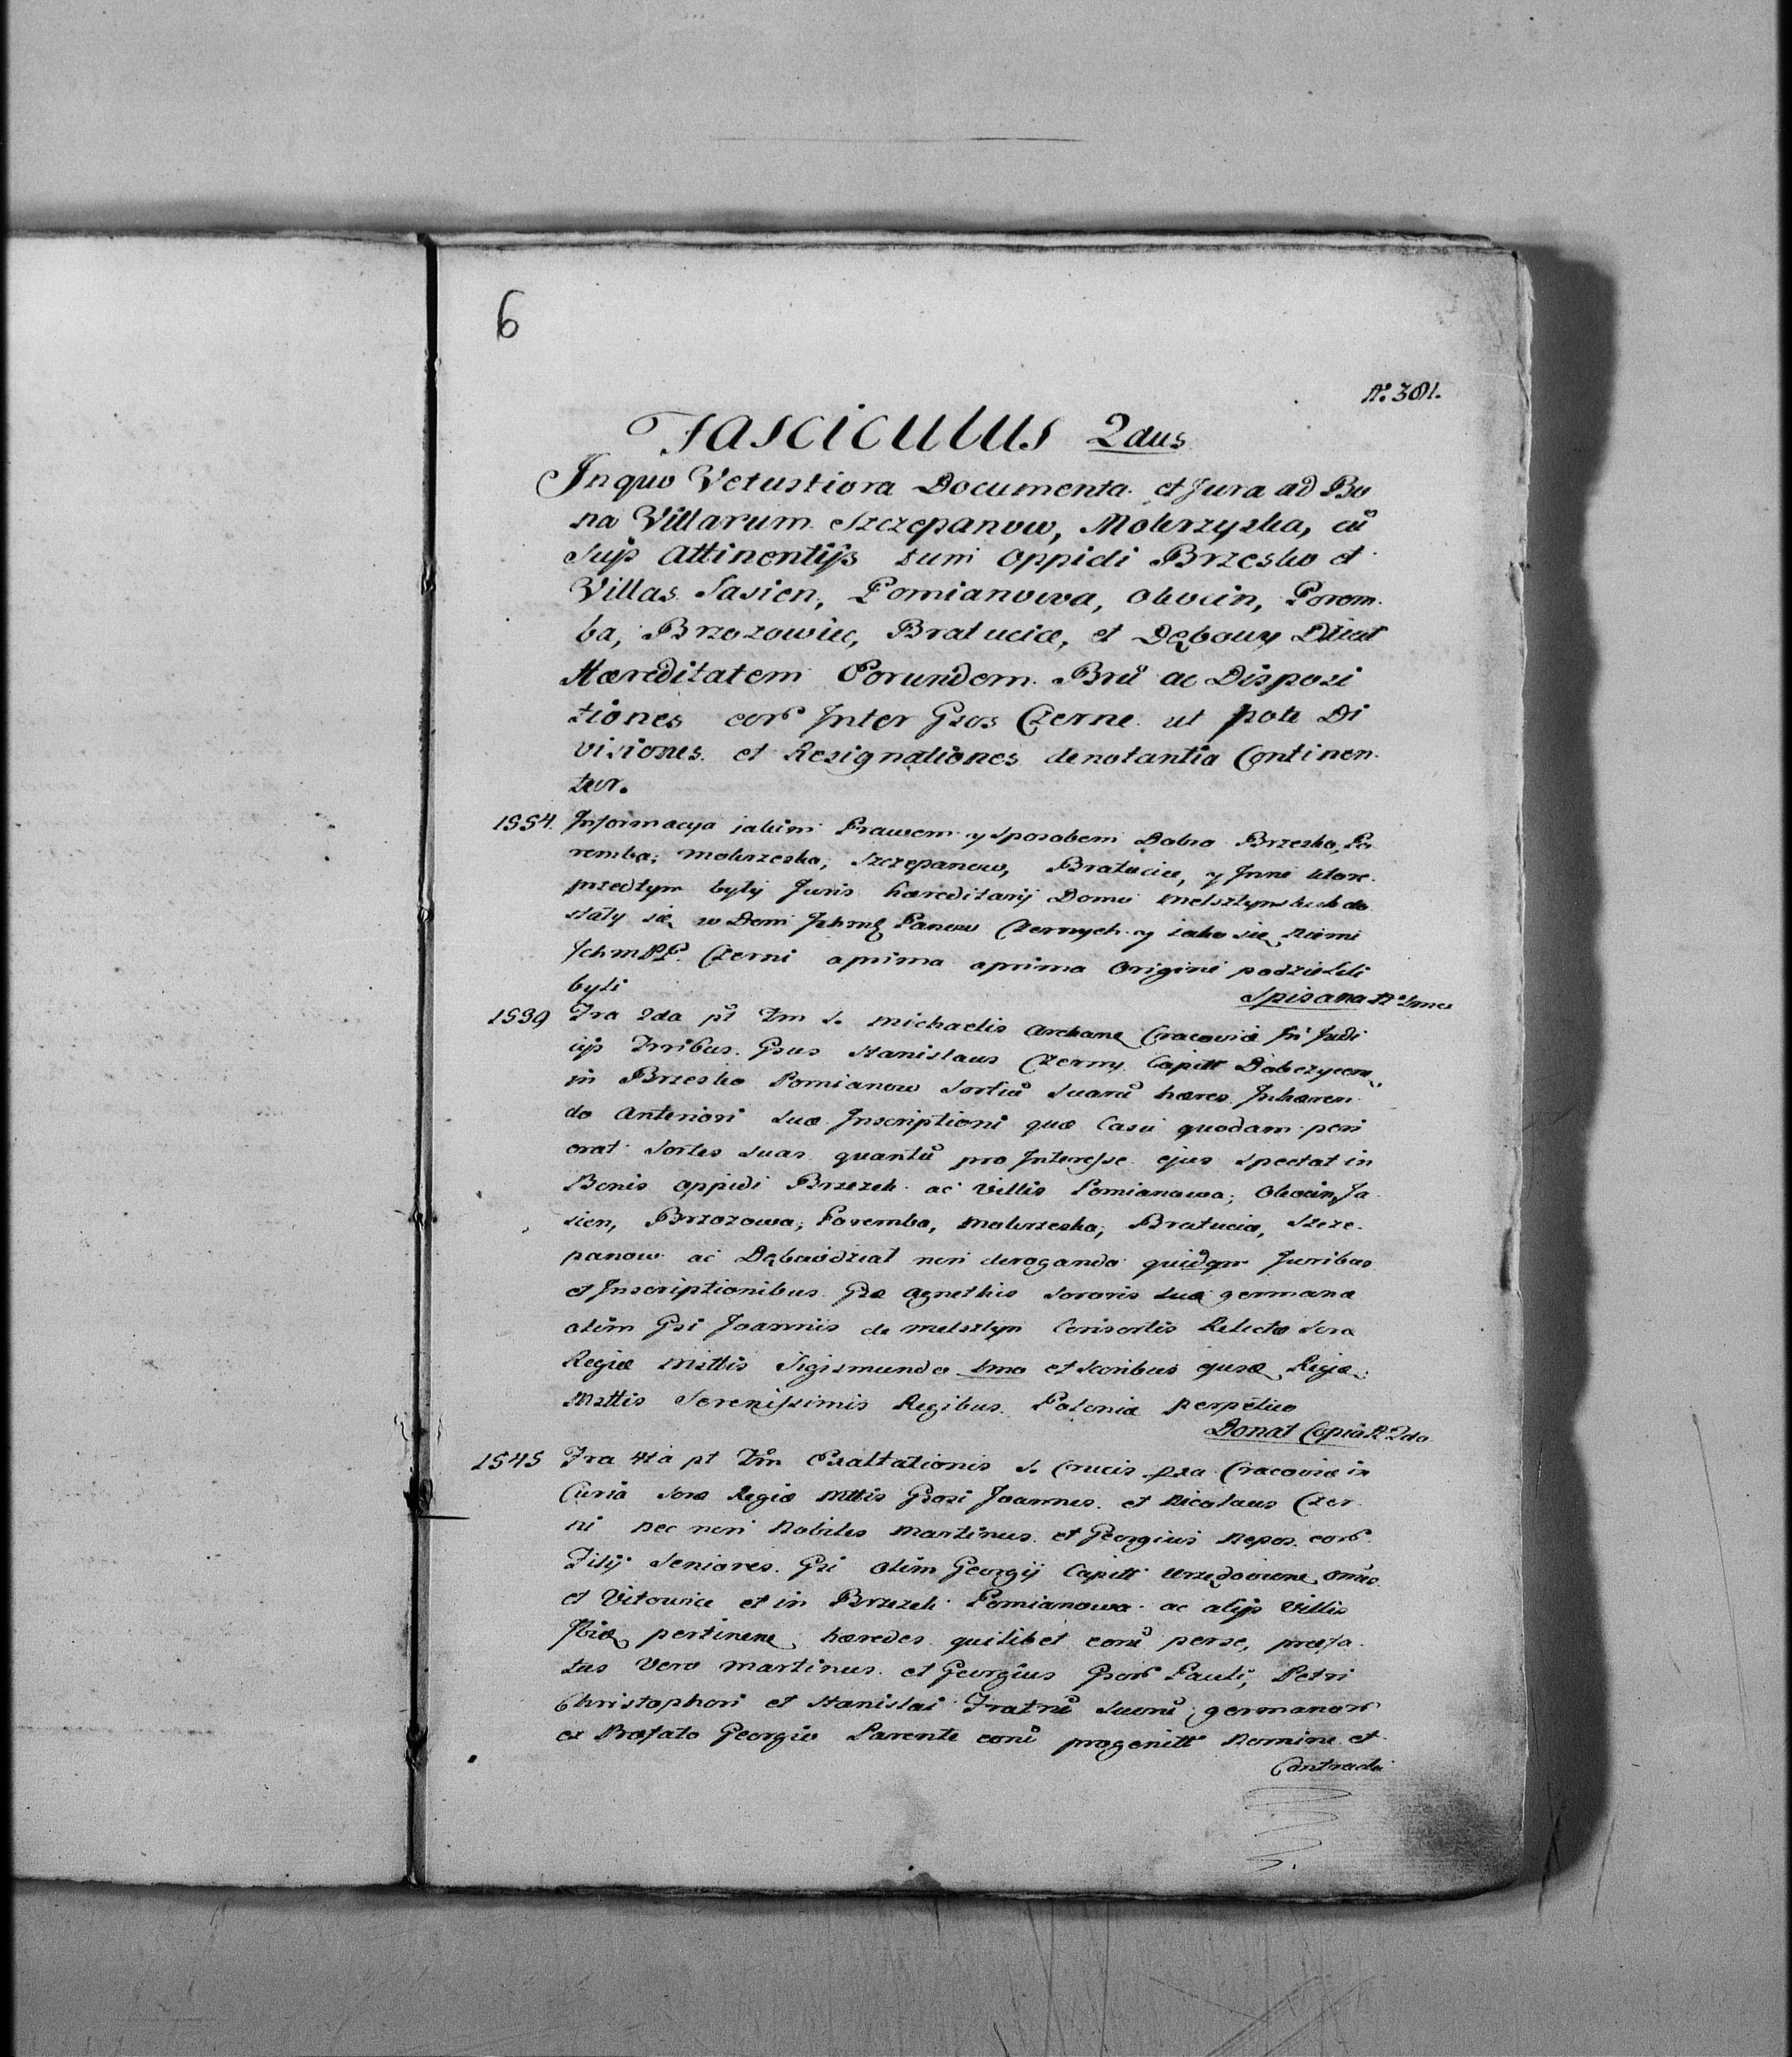 6
Nº. 381.
Fasciculus 2dus
In quo Vetustiora Documenta et Jura ad Bo
na Villarum Szczepanow, Mokrzyska, cũ
suis Attinentijs tum Oppidi Brzesko et
Villas Jasien, Pomianowa, Okocin, Porem
ba, Brzozowiec, Bratucice, et Dębowy Dział
Hæreditatem Eorundem Brũ ac Disposi
tiones eor̃ Inter Gsos Czerne ut pote Di
visiones et Resignationes denotantia Continen
tur.
1554. Informacya iakim Prawem y sposobem Dobra Brzesko, Po
remba, Mokrzeska, Szczepanow, Bratucice, y Inne ktore
przedtym były Juris hæreditarij Domu Melsztynskich do
stały się w Dom Ichmę Panow Czernych y iako się niemi
Ichm PP. Czerni a prima a prima Origine podzielili
byli
Spisana Nº 1mo
1539 Fra 2da pt Fm S. Michaelis Archane Cracoviæ in Judi
cijs Trribus. Gsus Stanislaus Czerny Capitt Dobczycen
in Brzesko Pomianow Sortiũ Suarũ hæres Inhæren
do Anteriori suæ Inscriptioni quæ Casu quodam peri
erat Sortes suas quantũ pro Interesse ejus spectat in
Bonis Oppidi Brzezek ac Villis Pomianowa, Okocin, Ja
sien, Brzozowa, Poremba, Mokrzeska, Bratucice, Szcze
panow ac Dębowidział non derogando quidqm Juribus
et Inscriptionibus Gsæ Agnethis Sororis suæ germanæ
olim Gsi Joannis de Melsztyn Consortis Relictæ Seræ
Regiæ Mattis Sigismundo 1mo et Scoribus ejusd Regiæ
Mattis Serenissimis Regibus Poloniæ perpetuo
Donat Copia N. 2do
1545 Fra 4ta pt Fm Exaltationis S. Crucis pxa Cracoviæ in
Curia Seræ Regiæ Mttis Gsosi Joannes et Nicolaus Czer
ni nec non Nobiles Martinus et Georgius Nepos eor̃
Filij Seniores Gsi olim Georgij Capitt Urzędoviene omẽs
et Vitowice et in Brzezek Pomianowa ac alijs Villis
Ibidę pertinene hæredes quilibet eorũ per se, præfa
tus Vero Martinus et Georgius Gsor̃ Pauli, Petri
Christophori et Stanislai Fratrũ suorũ germanor̃
ex Præfato Georgio Parente eorũ progenitt Nomine et
Contracti